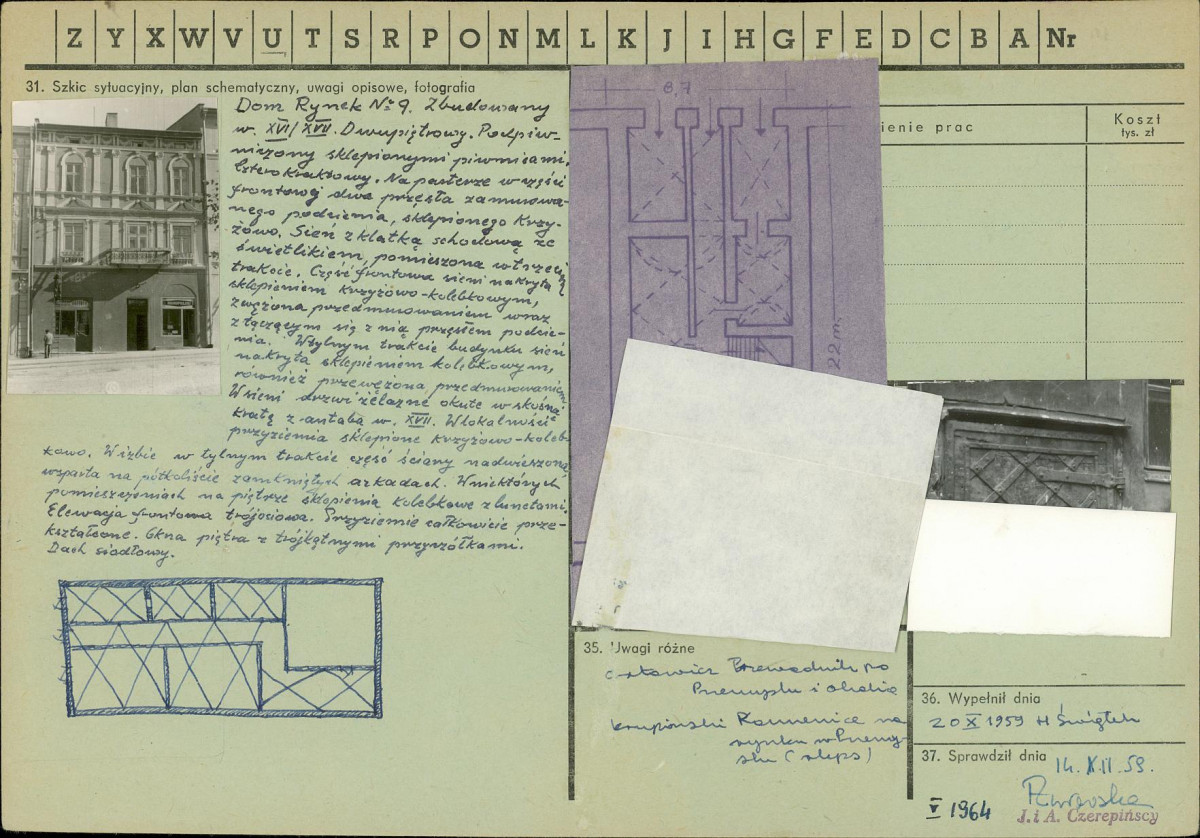 Z Y X W V U T S R P O N M L K J I H G F E D C B A Nr
31. Szkic sytuacyjny, plan schematyczny, uwagi opisowe, fotografia
Dom Rynek Nº 9. Zbudowany
w. XVI/XVII. Dwupiętrowy. Podpiw-
niczony sklepionymi piwnicami.
Czterotraktowy. Na parterze w części
frontowej dwa przęsła zamurowa-
nego podcienia, sklepionego krzy-
żowo. Sień z klatką schodową ze
świetlikiem, pomieszczona w trzecim
trakcie. Część frontowa sieni nakryta
sklepieniem krzyżowo-kolebkowym,
zwężona przedmurowaniem wraz
z łączącym się z nią przęsłem podcie-
nia. W tylnym trakcie budynku sień
nakryta sklepieniem kolebkowym,
również przewężona przedmurowaniem.
W sieni drzwi żelazne okute w skośną
kratę z antabą w. XVII. W lokalności
przyziemia sklepione krzyżowo-koleb-
kowo. W izbie w tylnym trakcie część ściany nadwieszona,
wsparta na półkoliście zamkniętych arkadach. W niektórych
pomieszczeniach na piętrze sklepienia kolebkowe z lunetami.
Elewacja frontowa trójosiowa. Przyziemie całkowicie prze-
kształcone. Okna piętra z trójkątnymi przyczółkami.
Dach siodłowy.
8,7
22 m.
ienie prac
Koszt
tys. zł
35. Uwagi różne
Przewodnik po
Przemyślu i okolicy
Krupiński Kamienice na
rynku w Przemy-
ślu
36. Wypełnił dnia
20 X 1959 H Świątek
37. Sprawdził dnia
14. XII 59.
V 1964
J. i A. Czerepińscy